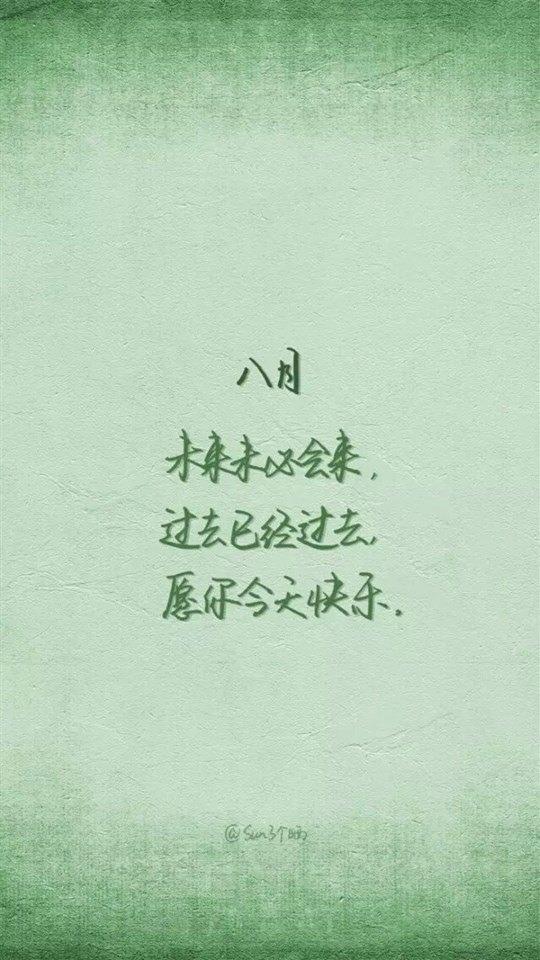 八月
未来未必会来，
过去已经过去，
愿你今天快乐.
@Sun3个晒